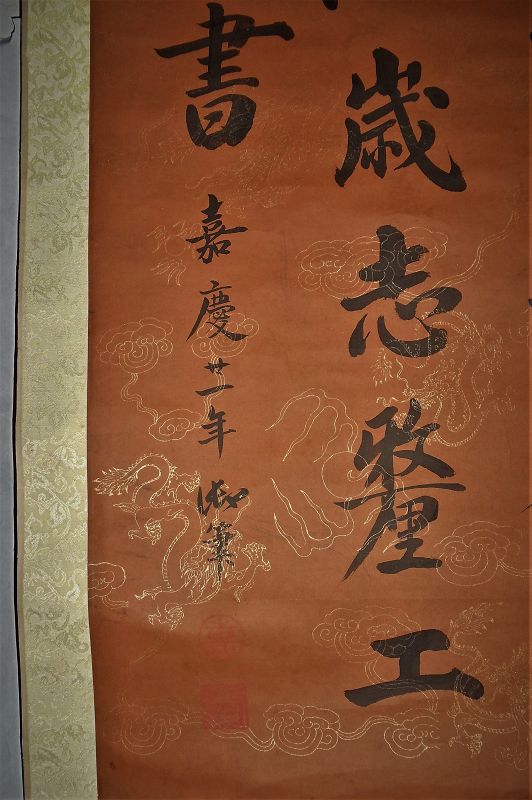 歲志釐工
書
嘉慶廿一年御筆